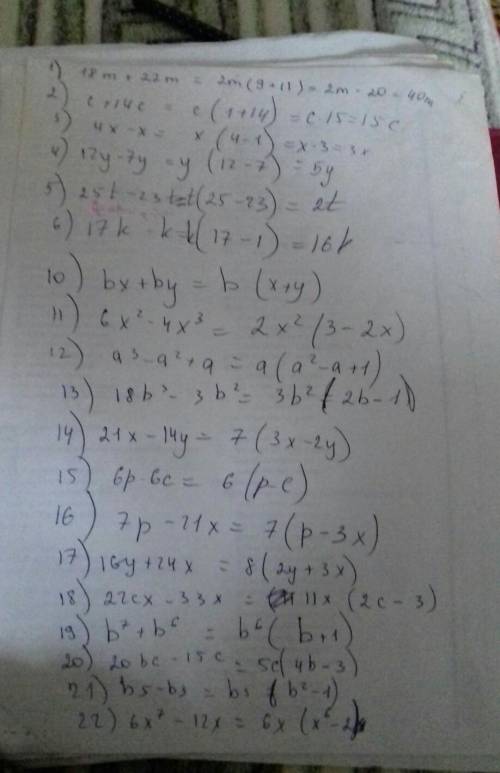 1) 18m + 22m = 2m(9+11) = 2m · 20 = 40m
2) c + 14c = c(1+14) = c·15 = 15c
3) 4x - x = x(4-1) = x·3 = 3x
4) 12y - 7y = y(12-7) = 5y
5) 25t - 23t = t(25-23) = 2t
6) 17k - k = k(17-1) = 16k
10) bx + by = b(x+y)
11) 6x² - 4x³ = 2x²(3-2x)
12) a³ - a² + a = a(a²-a+1)
13) 18b³ - 3b² = 3b²(2b-1)
14) 21x - 14y = 7(3x-2y)
15) 6p - 6c = 6(p-c)
16) 7p - 21x = 7(p-3x)
17) 16y + 24x = 8(2y+3x)
18) 22cx - 33x = 11x(2c-3)
19) b⁷ + b⁶ = b⁶(b+1)
20) 20bc - 15c = 5c(4b-3)
21) b5 - b3 = b3(b²-1)
22) 6x⁷ - 12x = 6x(x⁶-2)